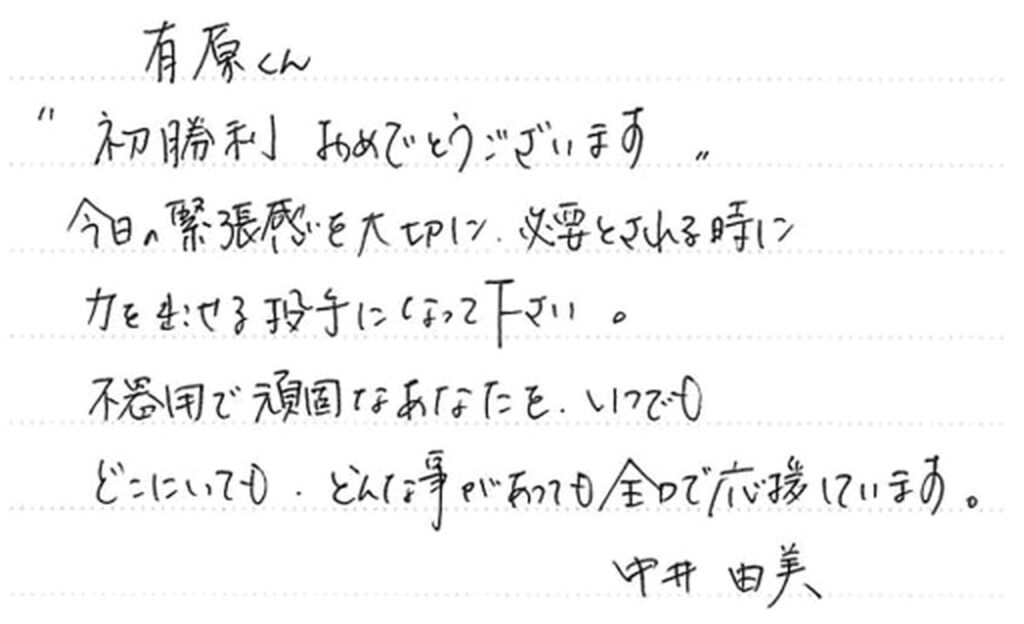 有原くん
〝初勝利 おめでとうございます〟
今日の緊張感を大切に、必要とされる時に
力を出せる投手になって下さい。
不器用で頑固なあなたを、いつでも
どこにいても、どんな事があっても全力で応援しています。
中井 由美